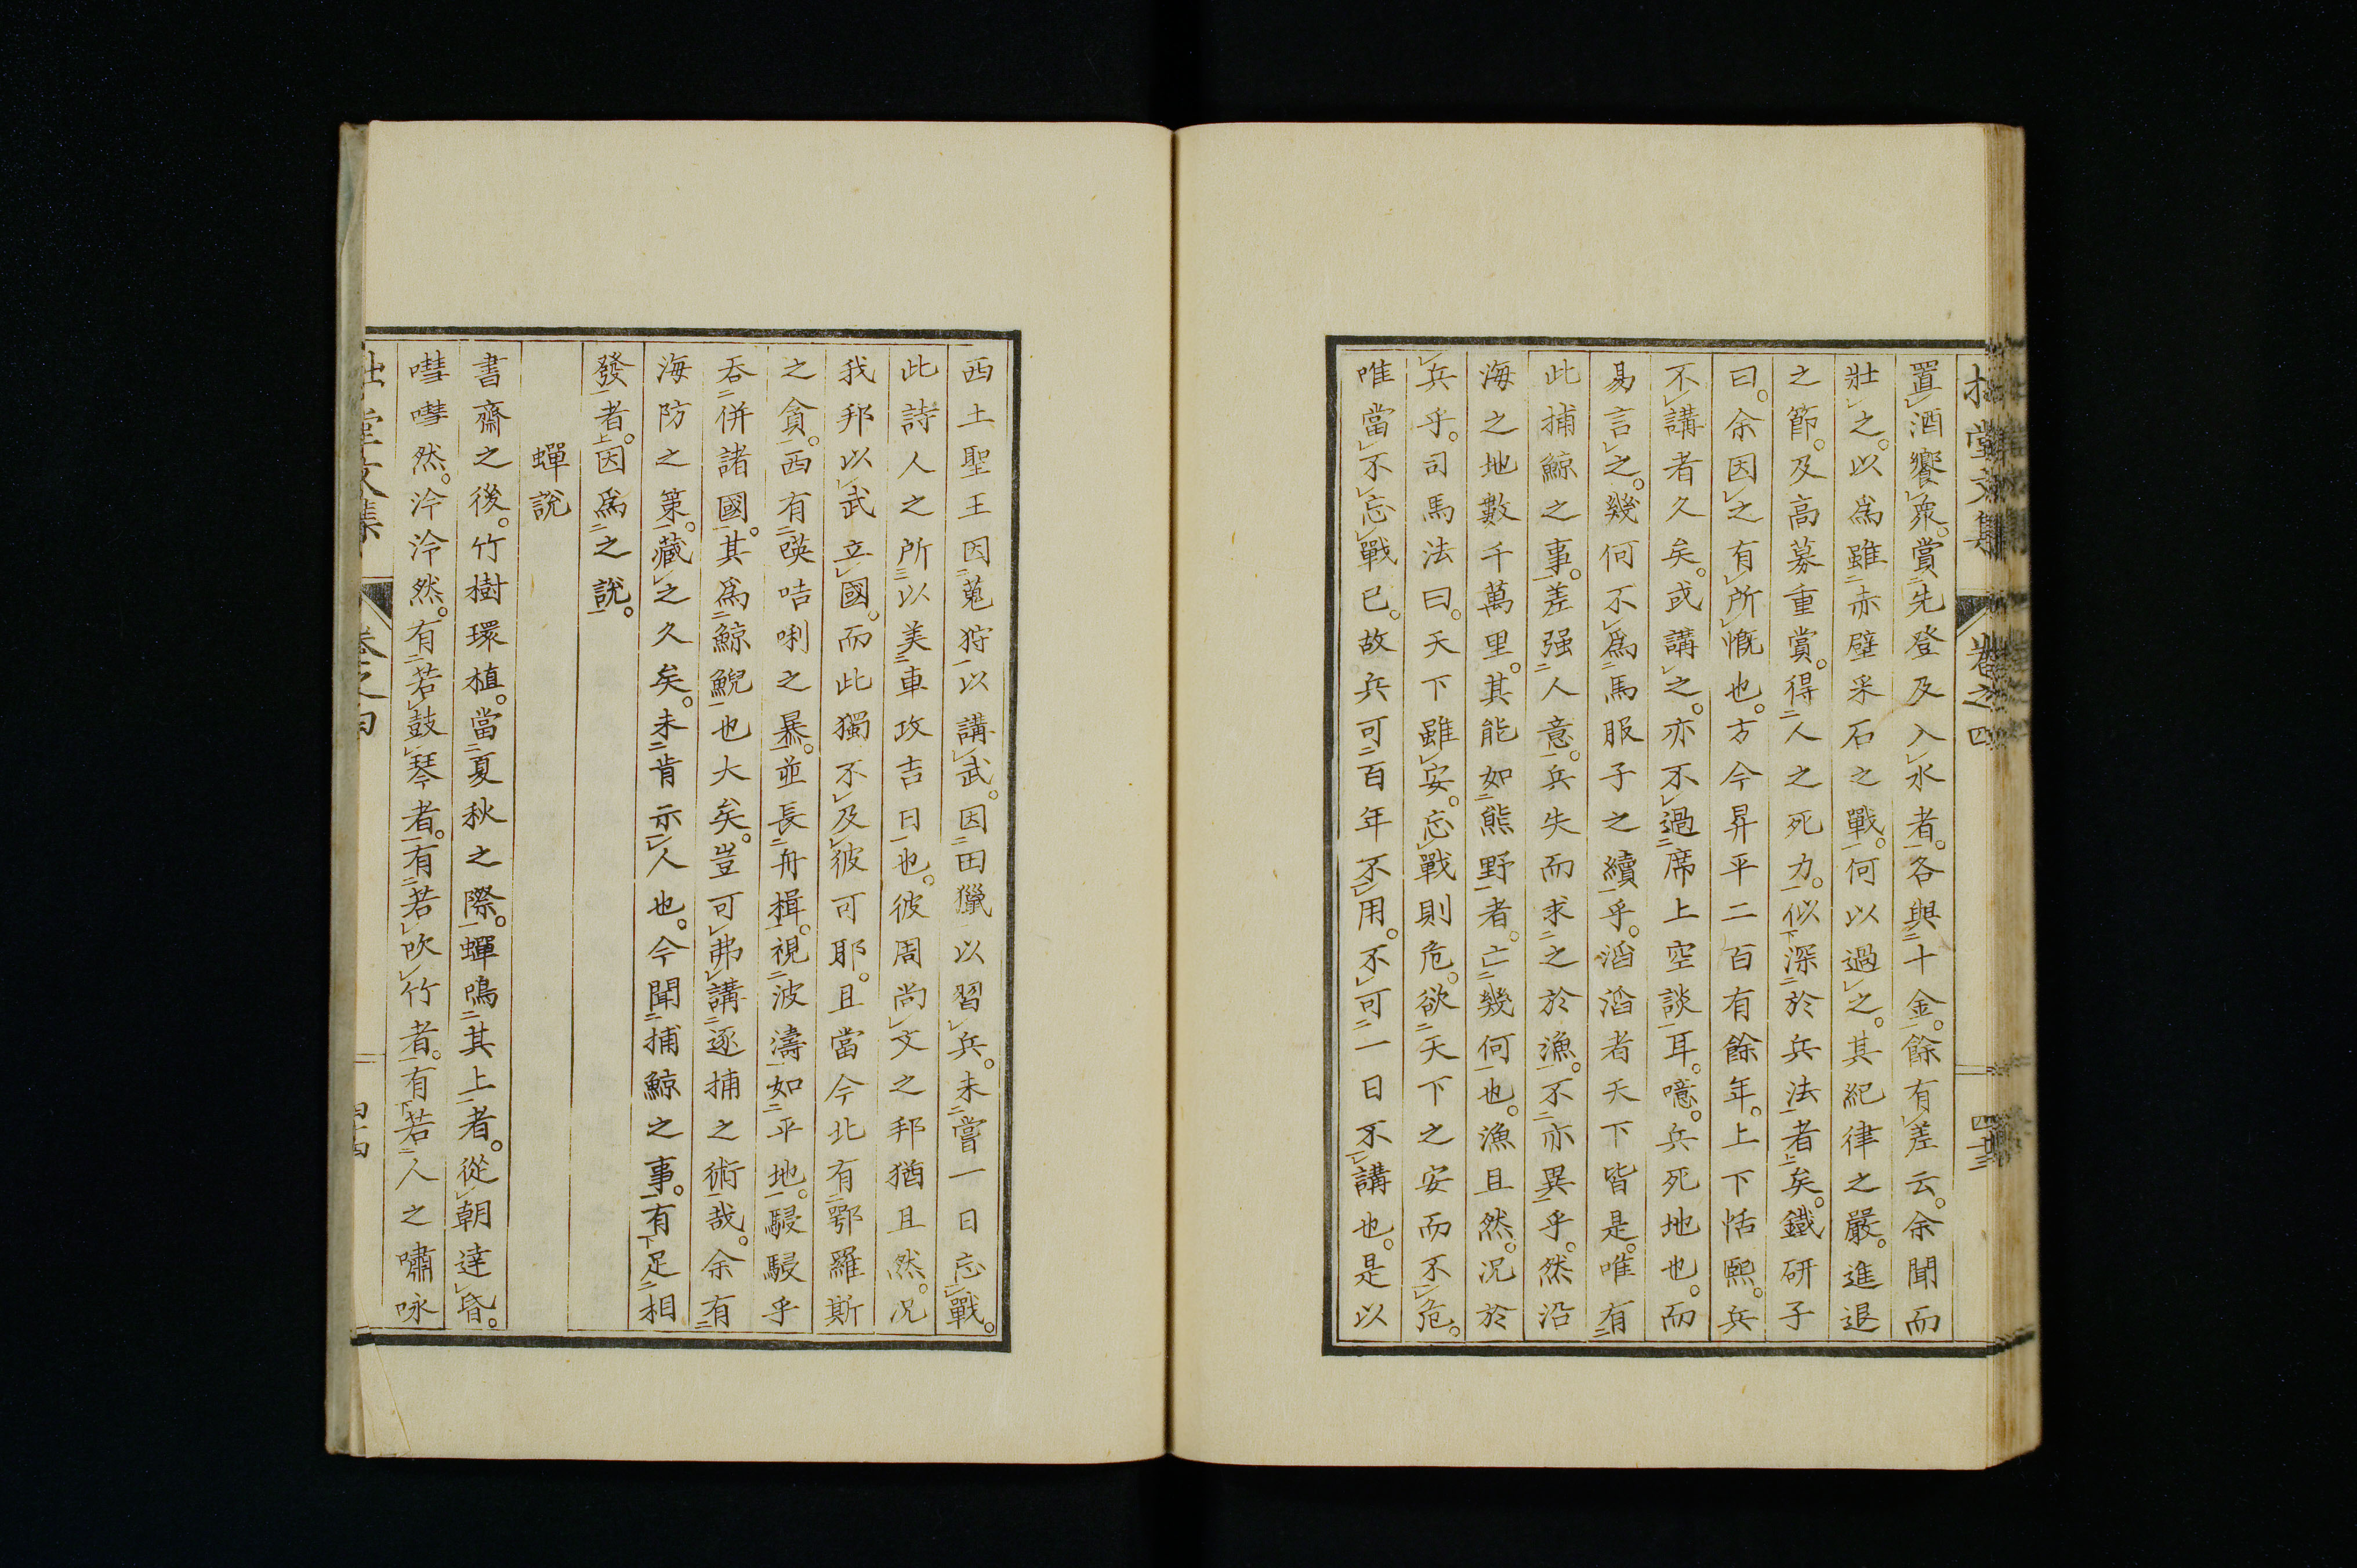 堂文集 卷之四
置酒饗衆。賞先登及入水者。各與十金。餘有差云。余聞而
壯之。以爲雖赤壁采石之戰。何以過之。其紀律之嚴。進退
之節。及高募重賞。得人之死力。似深於兵法者矣。鐵研子
曰。余因之有所慨也。方今昇平二百有餘年。上下恬熙。兵
不講者久矣。或講之。亦不過席上空談耳。噫。兵死地也。而
易言之。幾何不爲馬服子之續乎。滔滔者天下皆是。唯有
此捕鯨之事。差强人意。兵失而求之於漁。不亦異乎。然沿
海之地數千萬里。其能如熊野者。亡幾何也。漁且然。况於
兵乎。司馬法曰。天下雖安。忘戰則危。欲天下之安而不危。
唯當不忘戰已。故兵可百年不用。不可一日不講也。是以
西土聖王因蒐狩以講武。因田獵以習兵。未嘗一日忘戰。
此詩人之所以美車攻吉日也。彼周尚文之邦猶且然。况
我邦以武立國。而此獨不及彼可耶。且當今北有鄂羅斯
之貪。西有暎咭唎之暴。並長舟楫。視波濤如平地。駸駸乎
吞併諸國。其爲鯨鯢也大矣。豈可弗講逐捕之術哉。余有
海防之策。藏之久矣。未肯示人也。今聞捕鯨之事。有足相
發者。因爲之說。
蟬說
書齋之後。竹樹環植。當夏秋之際。蟬鳴其上者。從朝達昏。
嘒嘒然。泠泠然。有若鼓琴者。有若吹竹者。有若人之嘯咏
堂文集